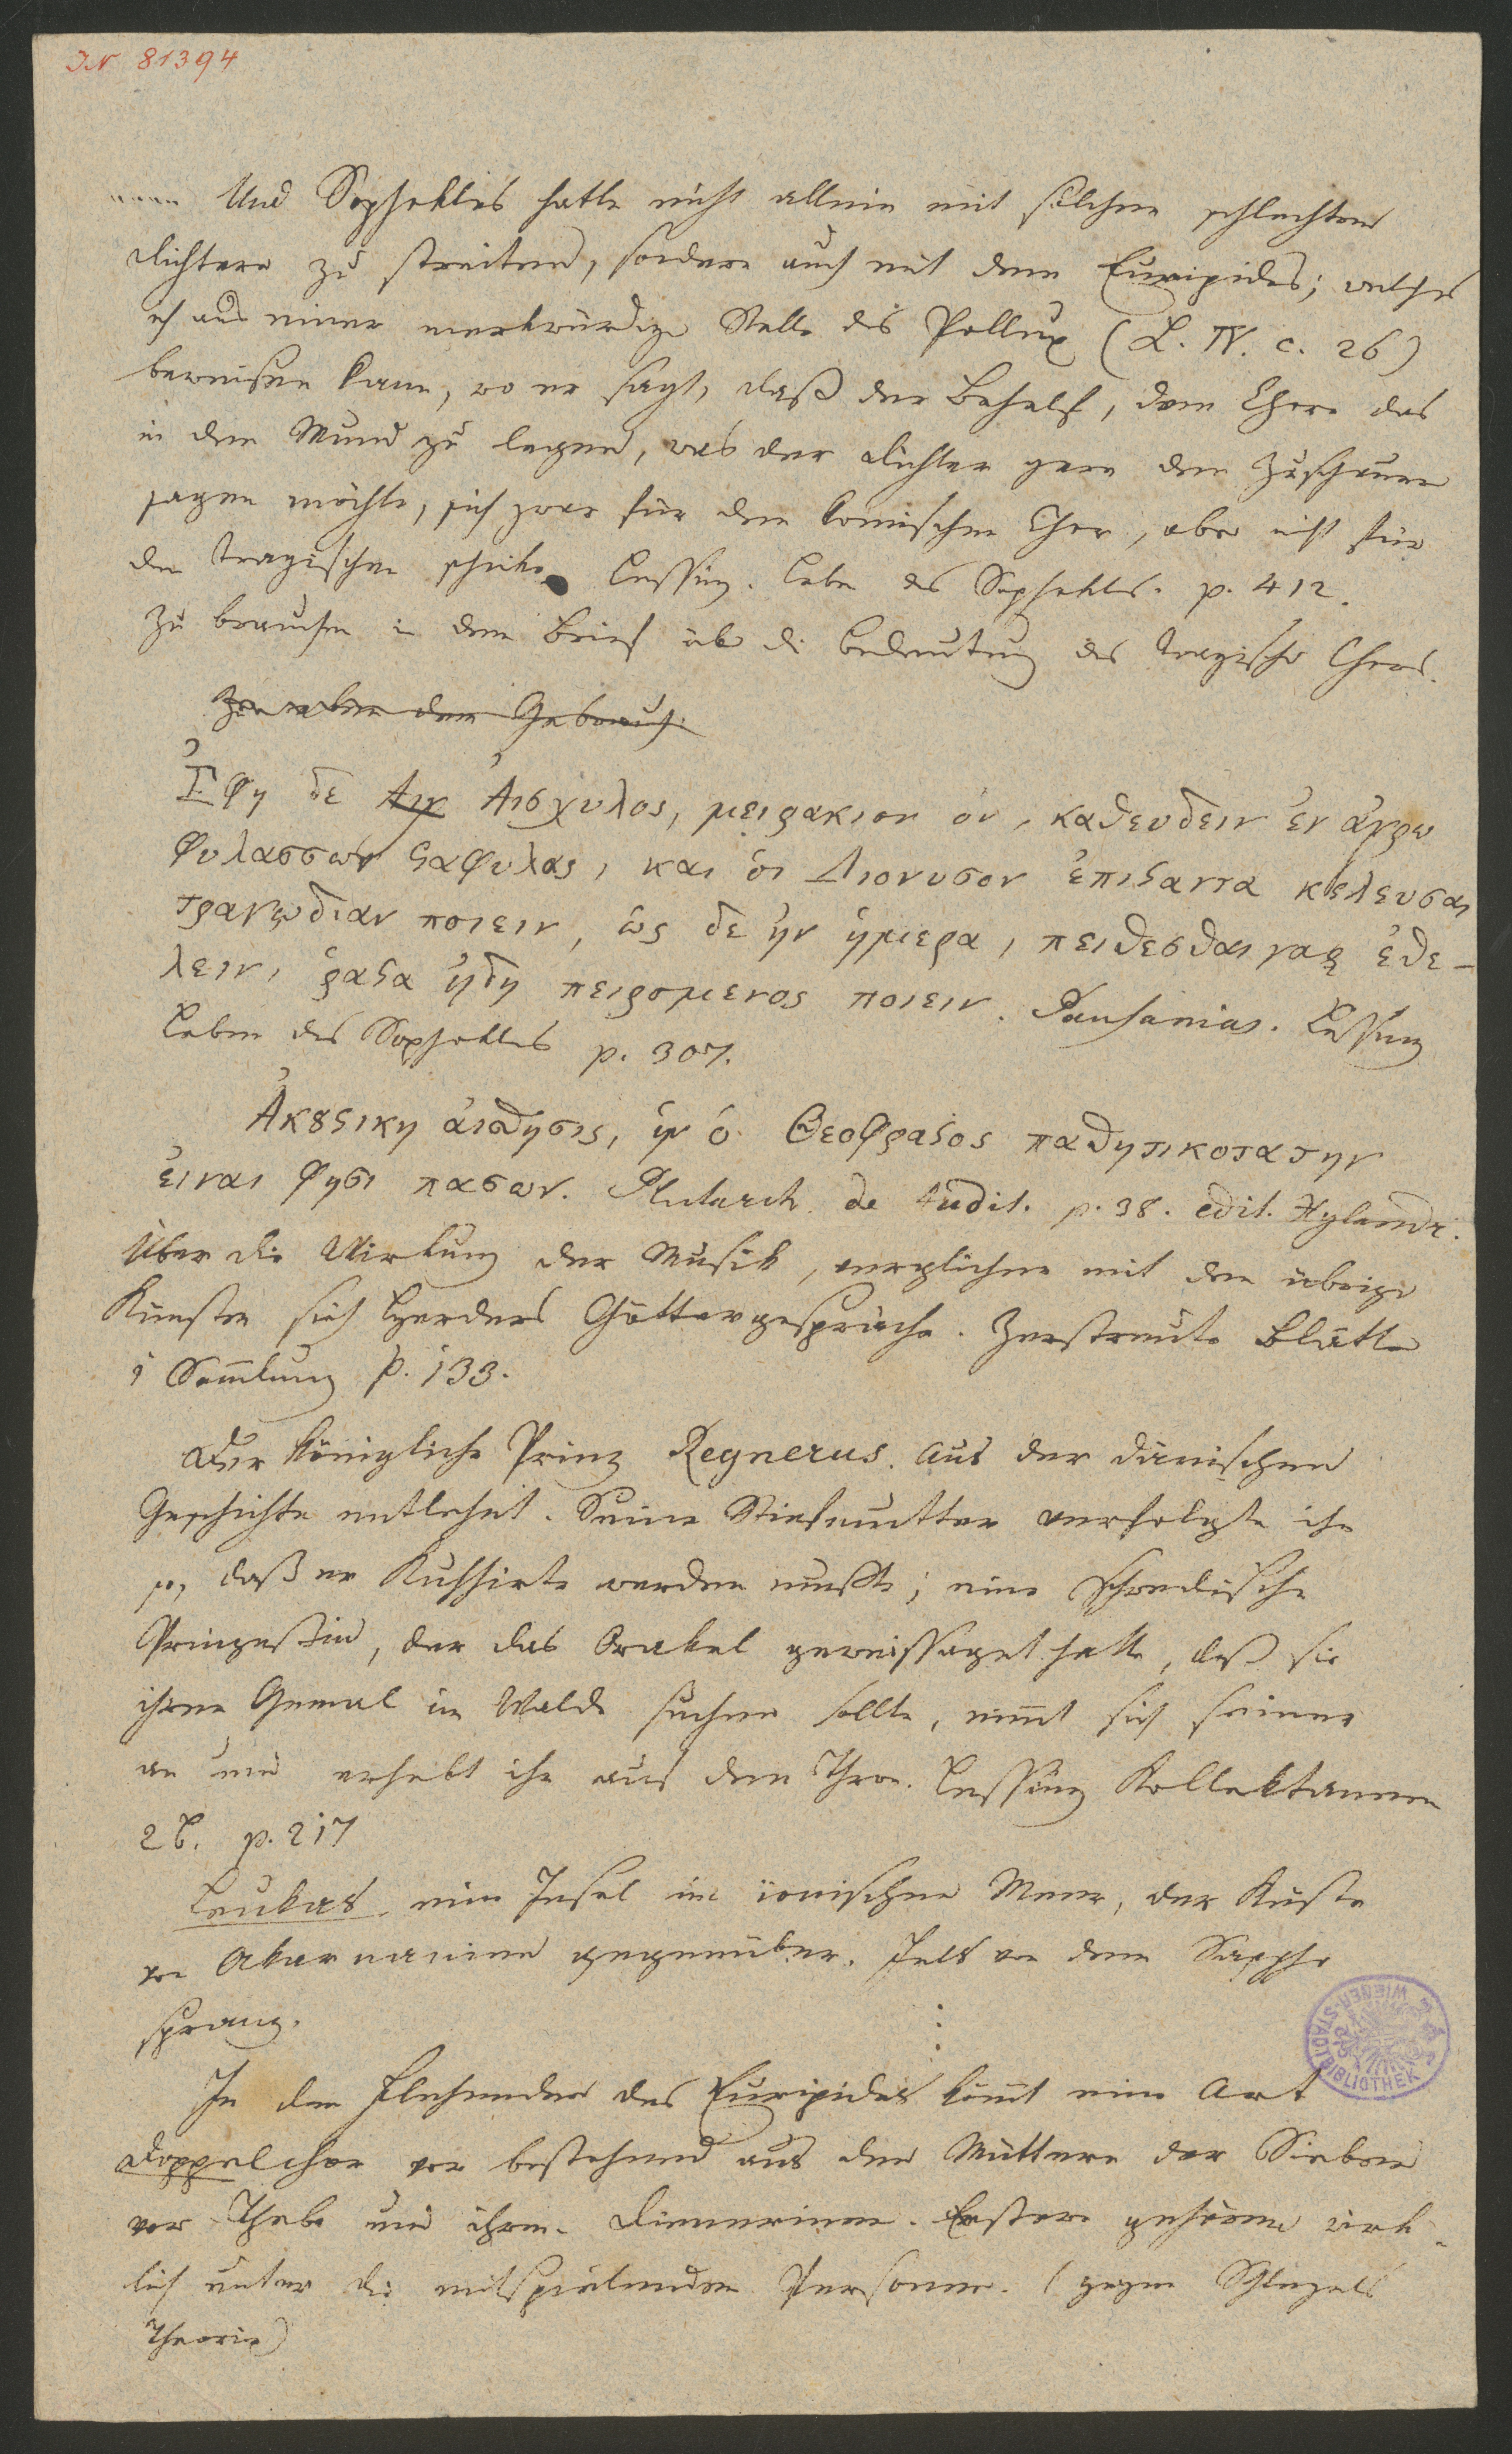 IN 81394
.... Und Sophokles hatte nicht allein mit solchen schlechten
Dichtern zu streiten, sondern auch mit dem Euripides; welches
ich aus einer merkwürdigen Stelle des Pollux (L. IV. c. 26)
beweisen kann, wo er sagt, daß der Behelf, dem Chore das
in den Mund zu legen, was der Dichter gern den Zuschauern
sagen möchte, sich zwar für den komischen Chor, aber nicht für
den tragischen schicke Lessing. Leben des Sophokles. p. 412.
Zu brauchen in dem Brief über die Bedeutung des tragischen Chors.
der Gebrauch
Ἐφη δε Αισ Ἀισχυλος, μειρακιον ὀν, καθευδειν ἐν ἀγρῳ
φυλασσων ϛαφυλας, και ὁι Διονυσον ἐπιϛαντα κελευσαι
τραγῳδιαν ποιειν, ὡς δε ἠν ἡμερα, πειθεσθαι γαρ ἐθε-
λειν, ῥαϛα ἠδη πειρομενος ποιειν. Pausanias. Lessing
Leben des Sophokles p. 307.
Ἀκȣϛικη ἀισθησις, ἡν ὁ Θεοφραϛος παθητικοτατην
ἐιναι φησι πασων. Plutarch de Audit. p. 38. edit. Xylandr.
Über die Wirkung der Musik, verglichen mit den übrigen
Künsten sieh Herders Göttergespräche. Zerstreute Blätter
1 Sam̅lung p. 133.
Der königliche Prinz Regnerus. Aus der dänischen
Geschichte entlehnt. Seine Stiefmutter verfolgte ihn
so, daß er Kuhhirte werden mußte; eine schwedische
Prinzeßin, der das Orakel geweissaget hatte, daß sie
ihren Gemal im Walde suchen sollte, nim̅t sich seiner
an und erhebt ihn auf den Thron. Lessing Kollektaneen
2 B. p. 217
Leukas eine Insel im ionischen Meer, der Küste
von Akarnanien gegenüber. Fels von dem Sappho
sprang.
In den Flehenden des Euripides kom̅t eine Art
Doppelchor vor bestehend aus den Müttern der Sieben
vor Thebe und ihren Dienerinnen. Erstere gehören wirk-
lich unter die mitspielenden Personen. (gegen Schlegels
Theorie)
WIENER-STADTBIBLIOTHEK